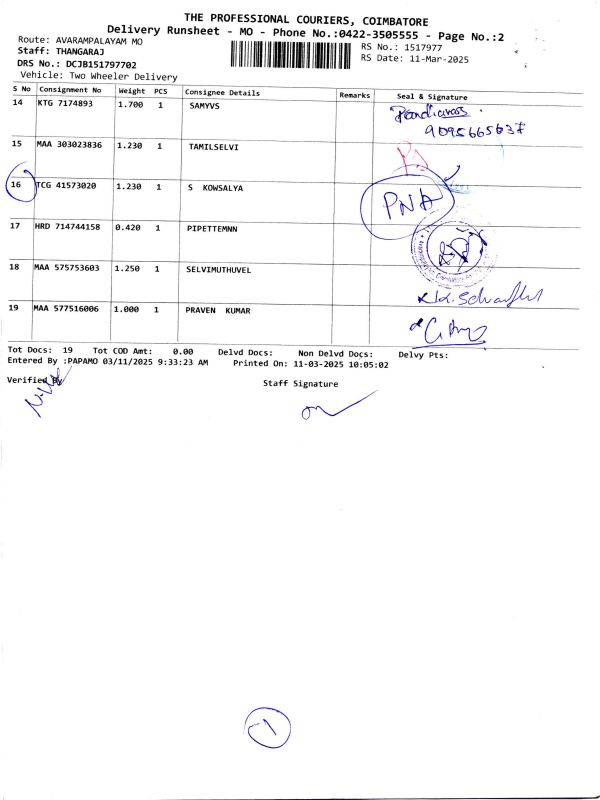 THE PROFESSIONAL COURIERS, COIMBATORE
Delivery Runsheet - MO - Phone No.:0422-3505555 - Page No.:2
Route: AVARAMPALAYAM MO
RS No.: 1517977
Staff: THANGARAJ
RS Date: 11-Mar-2025
DRS No.: DCJB151797702
Vehicle: Two Wheeler Delivery
S No Consignment No Weight PCS Consignee Details Remarks Seal & Signature
14 KTG 7174893 1.700 1 SAMYVS
9095665637
15 MAA 303023836 1.230 1 TAMILSELVI
16 TCG 41573020 1.230 1 S KOWSALYA PNA
17 HRD 714744158 0.420 1 PIPETTEMNN
18 MAA 575753603 1.250 1 SELVIMUTHUVEL
19 MAA 577516006 1.000 1 PRAVEN KUMAR
Tot Docs: 19 Tot COD Amt: 0.00 Delvd Docs: Non Delvd Docs: Delvy Pts:
Entered By :PAPAMO 03/11/2025 9:33:23 AM Printed On: 11-03-2025 10:05:02
Verified By Staff Signature
1